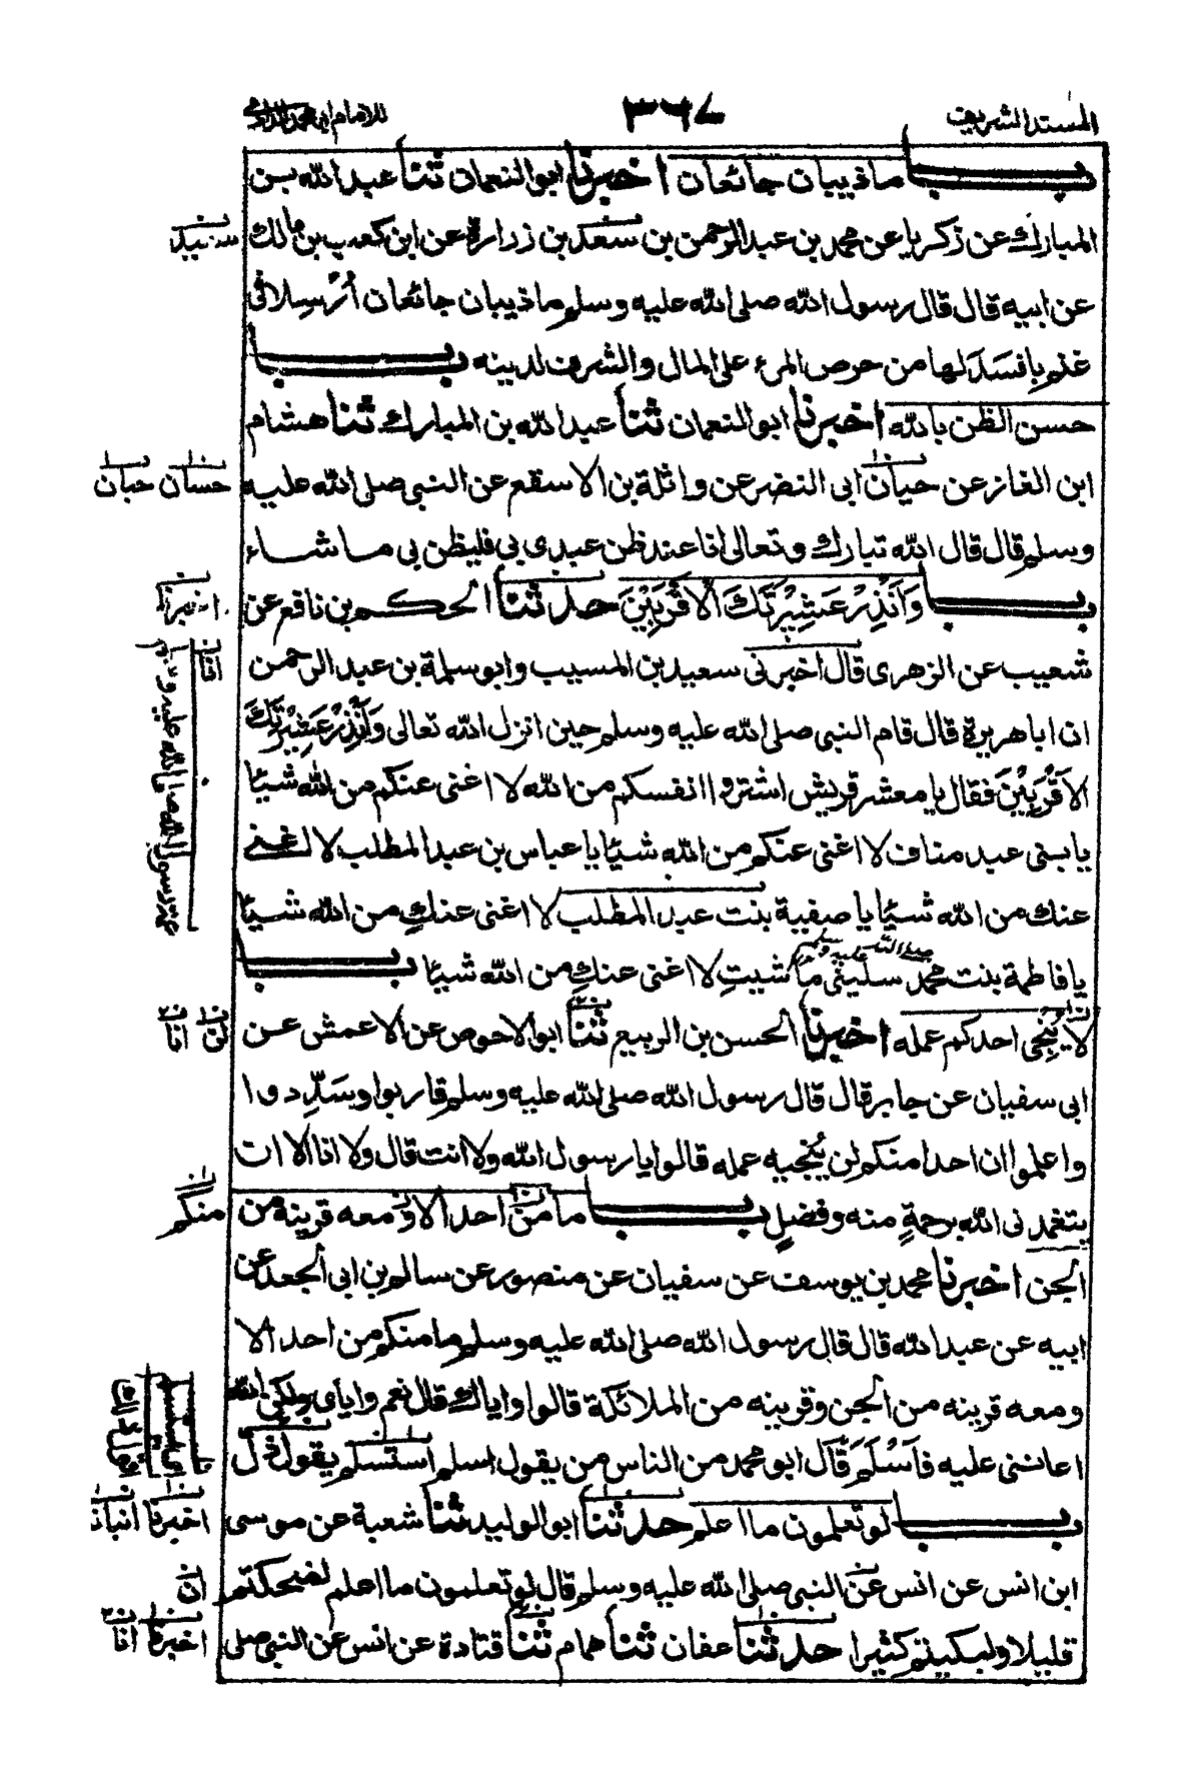 المسند الشريف ٣٦٧ للامام ابي محمد الدارمي
باب ماذيبان جائعان اخبرنا ابو النعمان ثنا عبد الله بن
المبارك عن زكريا عن محمد بن عبد الرحمن بن سعد بن زرارة عن ابن كعب بن مالك
عن ابيه قال قال رسول الله صلى الله عليه وسلم ماذيبان جائعان اُرسِلا في
غنم بافسَدَ لها من حرص المرء على المال والشرف لدينه باب
حسن الظن بالله اخبرنا ابو النعمان ثنا عبد الله بن المبارك ثنا هشام
ابن الغاز عن حيان ابى النضر عن واثلة بن الاسقع عن النبي صلى الله عليه
حسان حبان
وسلم قال قال الله تبارك وتعالى انا عند ظن عبدي بي فليظن بي ما شاء
باب وَاَنْذِرْ عَشِيْرَتَكَ الْاَقْرَبِيْنَ حدثنا الحكم بن نافع عن
شعيب عن الزهرى قال اخبرنى سعيد بن المسيب وابو سلمة بن عبد الرحمن
ان اباهريرة قال قام النبي صلى الله عليه وسلم حين انزل الله تعالى وَاَنْذِرْ عَشِيْرَتَكَ
الْاَقْرَبِيْنَ فقال يا معشر قريش اشتروا انفسكم من الله لا اغنى عنكم من الله شيئا
يا بنى عبد مناف لا اغنى عنكم من الله شيئا يا عباس بن عبد المطلب لا اغنى
عنك من الله شيئا يا صفية بنت عبد المطلب لا اغنى عنكِ من الله شيئا
يا فاطمة بنت محمد صلى الله عليه وسلم سلينى ما شيتِ لا اغنى عنكِ من الله شيئا باب
لا يُنجِى احدكم عمله اخبرنا الحسن بن الربيع ثنا ابو الاحوص عن الاعمش عن
ابى سفيان عن جابر قال قال رسول الله صلى الله عليه وسلم قاربوا وسَدِّدوا
واعلموا ان احدا منكم لن يُنجيه عمله قالوا يا رسول الله ولا انت قال ولا انا الا ان
يتغمدنى الله برحمةٍ منه وفضلٍ باب ما من احد الا ومعه قرينه من
منكم
الجن اخبرنا محمد بن يوسف عن سفيان عن منصور عن سالم بن ابى الجعد عن
ابيه عن عبد الله قال قال رسول الله صلى الله عليه وسلم ما منكم من احد الا
ومعه قرينه من الجن وقرينه من الملائكة قالوا واياك قال نعم واياى ولكن الله
اعاننى عليه فاَسْلَمَ قال ابو محمد من الناس من يقول اسلم استسلم يقول ذل
باب لو تعلمون ما اعلم حدثنا ابو الوليد ثنا شعبة عن موسى
اخبرنا انبانا
ابن انس عن انس عن النبي صلى الله عليه وسلم قال لو تعلمون ما اعلم لضحكتم
ان
قليلا ولبكيتم كثيرا حدثنا عفان ثنا همام ثنا قتادة عن انس عن النبي صلى
اخبرنا انا